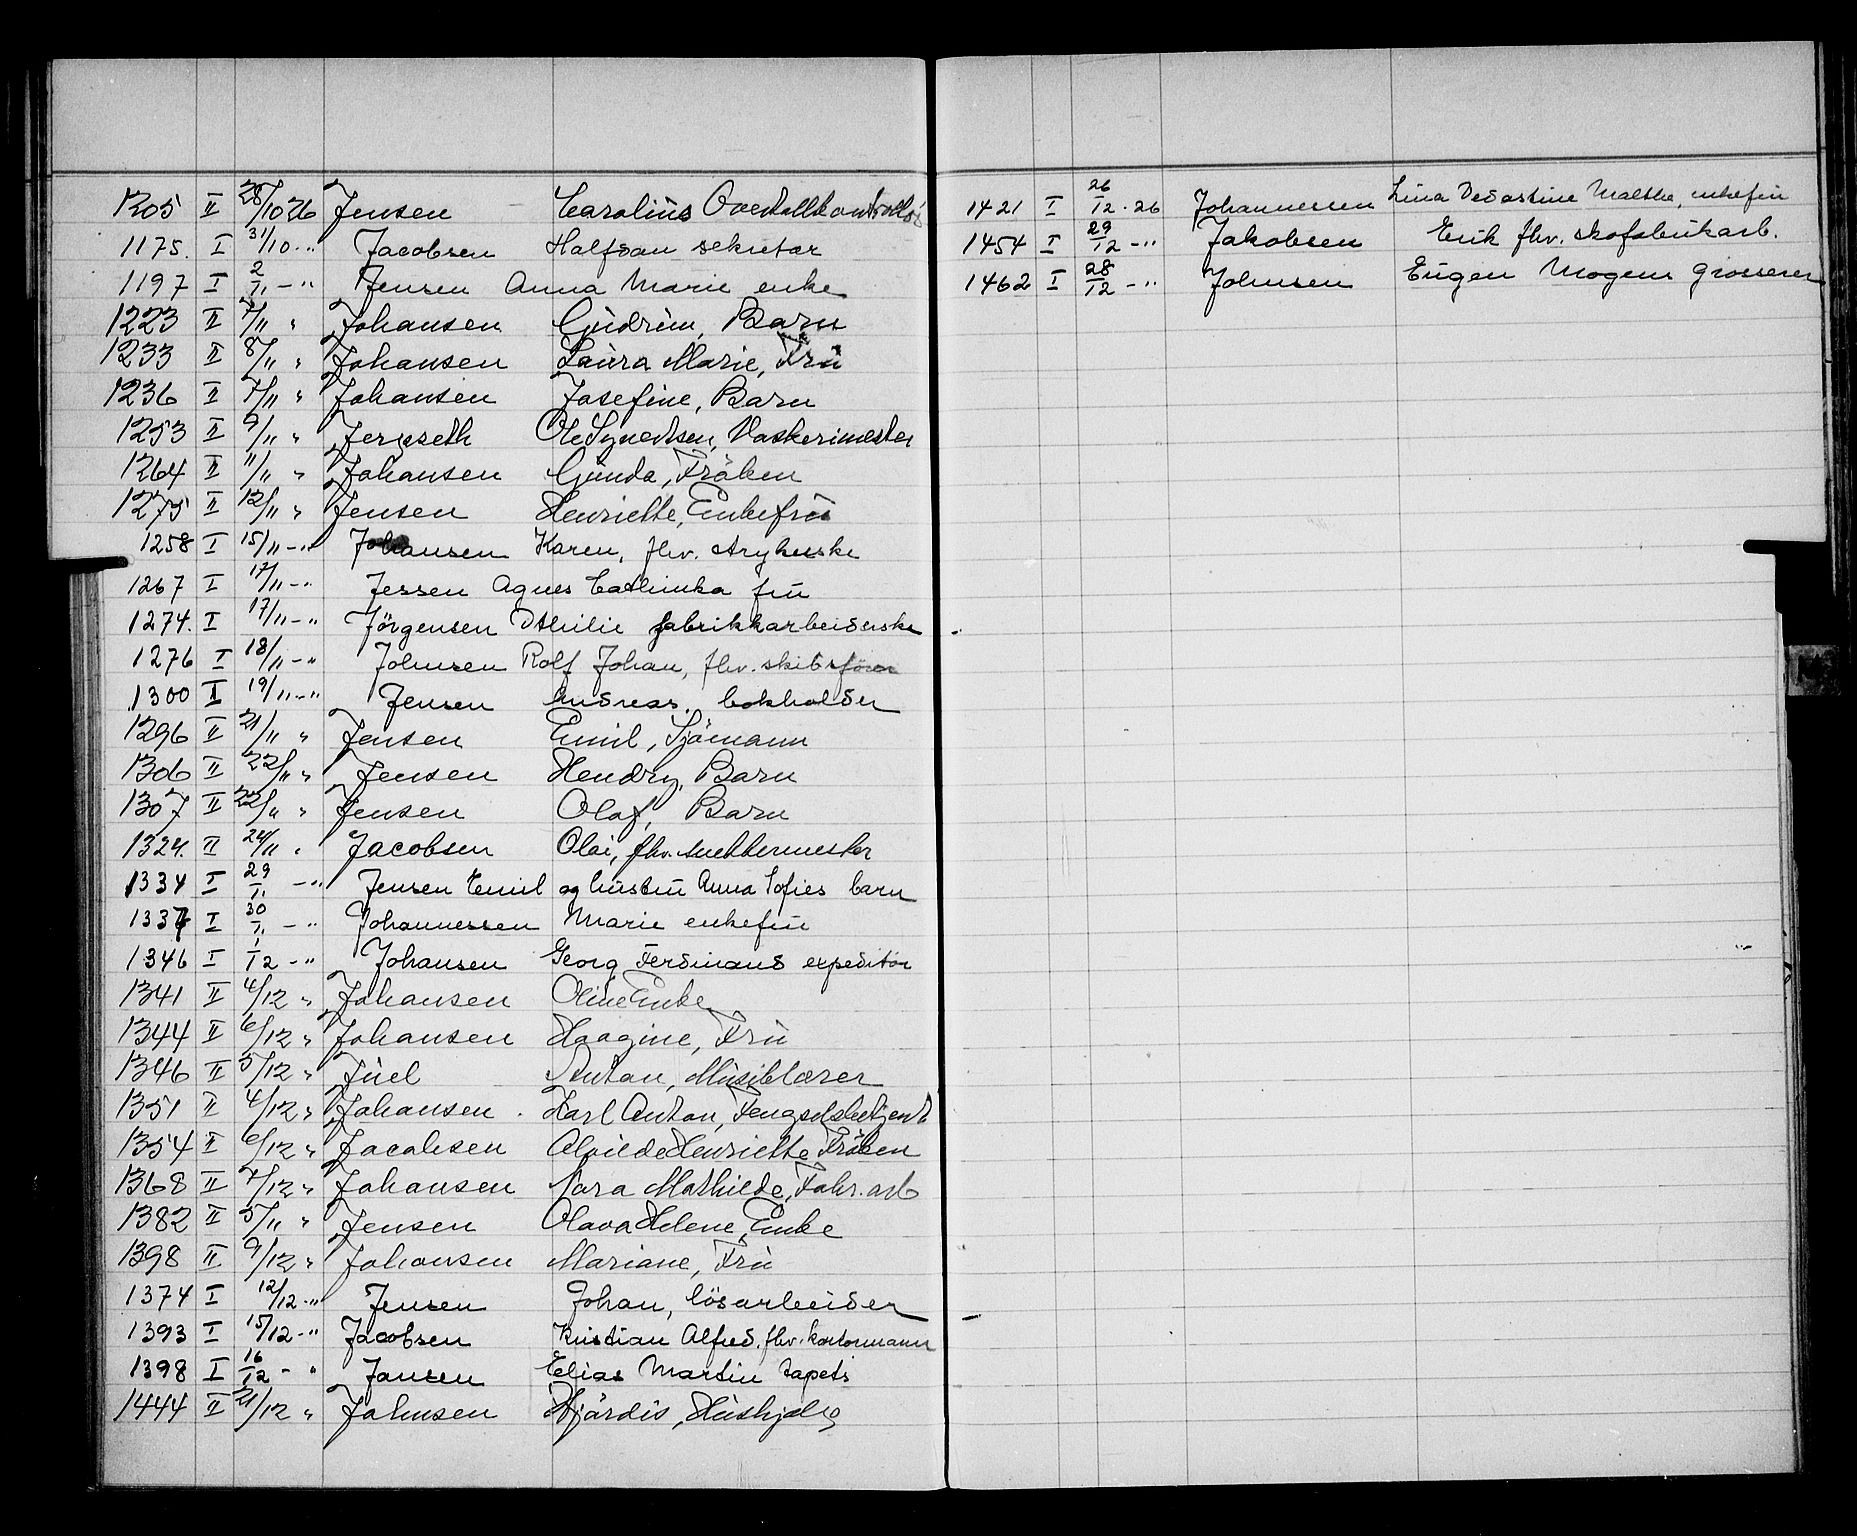 1205 II 28/10 26 Jensen Carolius Overtollkontrollør
1175. I 31/10 -" Jacobsen Halfdan sekretær
1197 I 2/11 -" Jensen Anna Marie enke
1223 II 7/11 " Johansen Gudrun, Barn
1233 II 8/11 " Johansen Laura Marie, Fru
1236 II 7/11 " Johansen Josefine, Barn
1253 II 9/11 " Ole Syvertsen, Vaskerimester
1264 II 11/11 " Johansen Gunda, Fröken
1275 II 12/11 " Jensen Henriette, Enkefru
1258 I 15/11 -" Johansen Karen, fhv. strykerske
1267 I 17/11 -" Jessen Agnes Cathinka fru
1274. I 17/11 -" Jörgensen Othilie fabrikkarbeiderske
1276 I 18/11 -" Johnsen Rolf Johan, fhv. skibsförer
1300 I 19/11 -" Jensen Andreas. bokholder
1296 II 21/11 " Jensen Emil, Sjömann
1306 II 22/11 " Jensen Hendry, Barn
1307 II 22/11 " Jensen Olaf, Barn
1324. II 24/11 " Jacobsen Olai, fhv.
1334 I 29/11 -" Jensen Emil og hustru Anna Sofies barn
1337 I 30/11 -" Johannessen Marie enkefru
1346 I 1/12 -" Johansen Georg Ferdinand expeditör
1341 II 4/12 " Johansen Oline Enke
1344 II 6/12 " Johansen Haagine, Fru
1346 II 5/12 " Juel Anton, Musiklærer
1351 II 4/12 " Johansen. Karl Anton, Fengselsbetjent
1354 II 6/12 " Jacobsen Alvilde Henriette Fröken
1368 II 7/12 " Johansen Nora Mathilde, Fabr. arb
1382 II 5/11 " Jensen Olava Helene, Enke
1398 II 9/12 " Johansen Mariane, Fru
1374 I 12/12 -" Jensen Johan, lösarbeider
1393 I 15/12 -" Jacobsen Kristian Alfred. fhv. kontormann
1398 I 16/12 - " Jansen Elias Martin tapets
1444 II 21/12 " Johnsen Hjördis, Hushjelp
1421 I 26/12 - 26 Johannessen Lina Malthe, enkefru
1454 I 29/12 -" Jakobsen Erik fhv. skofabrikarb.
1462 I 28/12 -" Johnsen Eugen Mogens Grosserer